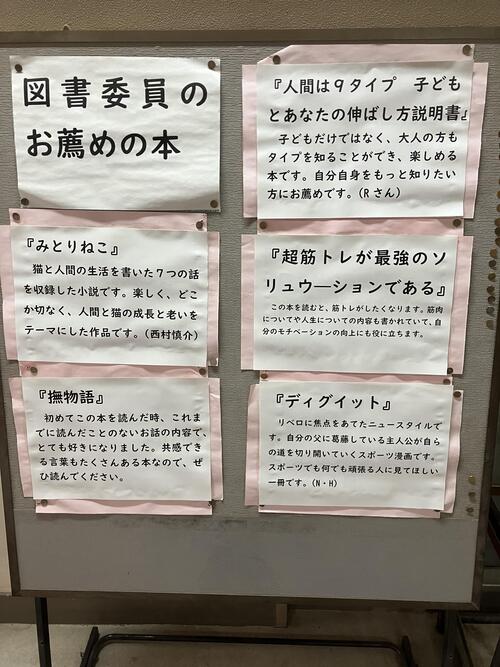 図書委員の
お薦めの本
『人間は９タイプ　子ども
とあなたの伸ばし方説明書』
子どもだけではなく、大人の方も
タイプを知ることができ、楽しめる
本です。自分自身をもっと知りたい
方にお薦めです。（Rさん）
『みとりねこ』
猫と人間の生活を書いた７つの話
を収録した小説です。楽しく、どこ
か切なく、人間と猫の成長と老いを
テーマにした作品です。（西村慎介）
『超筋トレが最強のソ
リュウ―ションである』
この本を読むと、筋トレがしたくなります。筋肉
についてや人生についての内容も書かれていて、自
分のモチベーションの向上にも役に立ちます。
『撫物語』
初めてこの本を読んだ時、これま
でに読んだことのないお話の内容で、
とても好きになりました。共感でき
る言葉もたくさんある本なので、ぜ
ひ読んでください。
『ディグイット』
リベロに焦点をあてたニュースタイルで
す。自分の父に葛藤している主人公が自ら
の道を切り開いていくスポーツ漫画です。
スポーツでも何でも頑張る人に見てほしい
一冊です。（N・H）